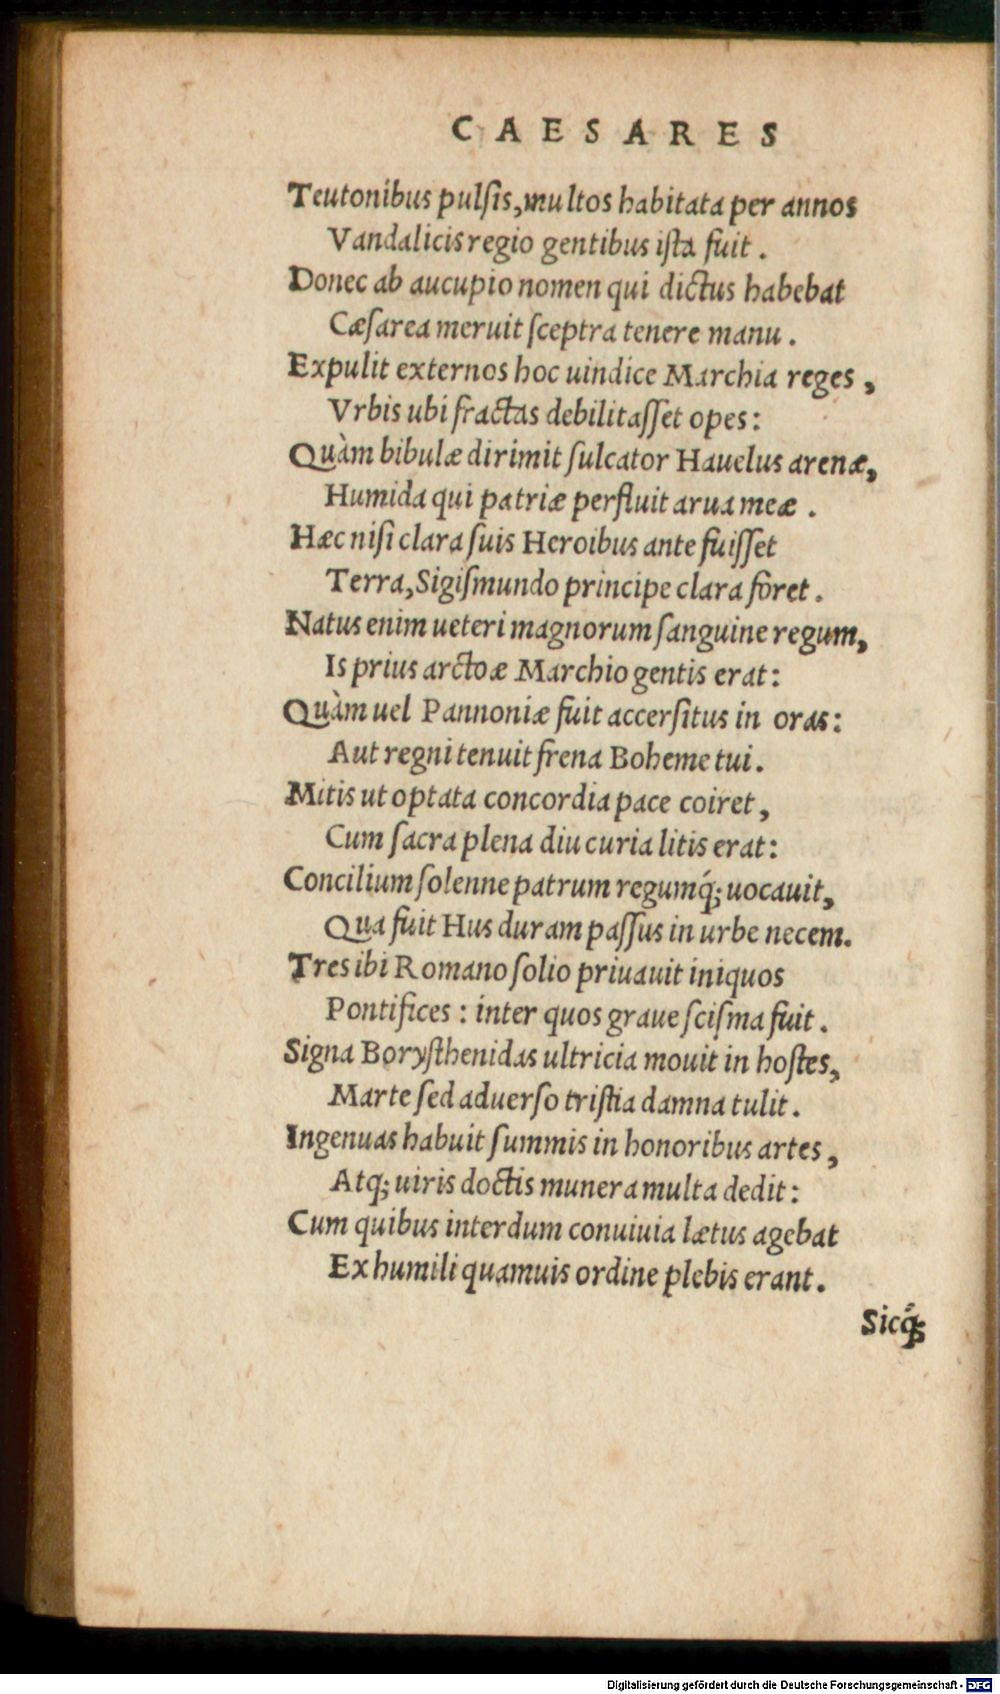 CAESARES
Teutonibus pulſis, multos habitata per annos
Vandalicis regio gentibus iſta fuit.
Donec ab aucupio nomen qui dictus habebat
Cæſarea meruit ſceptra tenere manu.
Expulit externos hoc uindice Marchia reges,
Vrbis ubi fractas debilitaſſet opes:
Quàm bibulæ dirimit ſulcator Hauelus arenæ,
Humida qui patriæ perfluit arua meæ.
Hæc niſi clara ſuis Heroibus ante fuiſſet
Terra, Sigiſmundo principe clara foret.
Natus enim ueteri magnorum ſanguine regum,
Is prius arctoæ Marchio gentis erat:
Quàm uel Pannoniæ fuit accerſitus in oras:
Aut regni tenuit frena Boheme tui.
Mitis ut optata concordia pace coiret,
Cum ſacra plena diu curia litis erat:
Concilium ſolenne patrum regumq́; uocauit,
Qua fuit Hus duram paſſus in urbe necem.
Tres ibi Romano ſolio priuauit iniquos
Pontifices: inter quos graue ſciſma fuit.
Signa Boryſthenidas ultricia mouit in hoſtes,
Marte ſed aduerſo triſtia damna tulit.
Ingenuas habuit ſummis in honoribus artes,
Atq; uiris doctis munera multa dedit:
Cum quibus interdum conuiuia lætus agebat
Ex humili quamuis ordine plebis erant.
Sicq́;
Digitalisierung gefördert durch die Deutsche Forschungsgemeinschaft - DFG